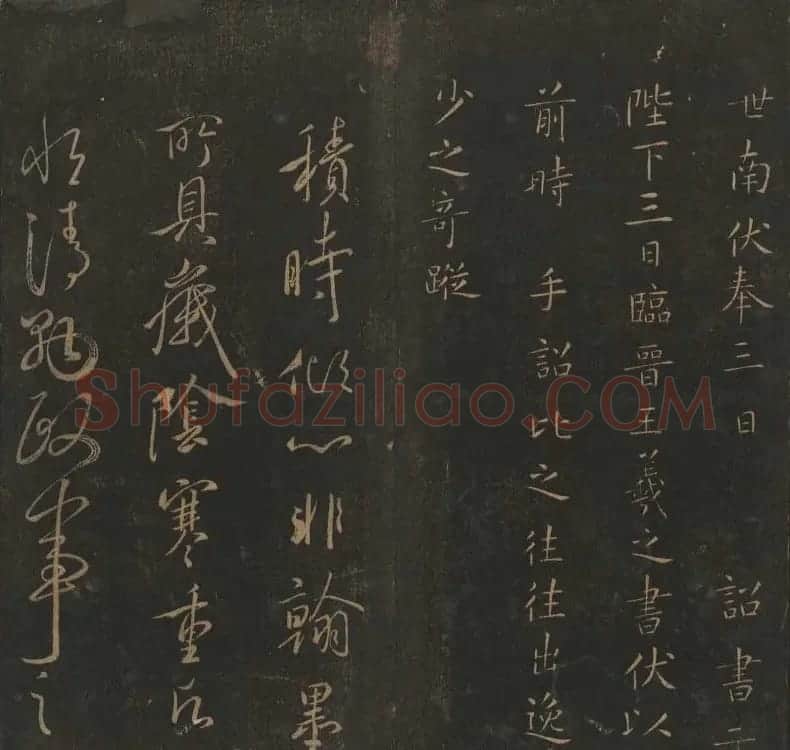 世南伏奉三日 詔書
陛下三日臨晉王羲之書伏以
前時 手詔比之往往出逸
少之奇蹤
積時 非翰墨
所具歲陰寒重
清 政事之
Shufaziliao.COM